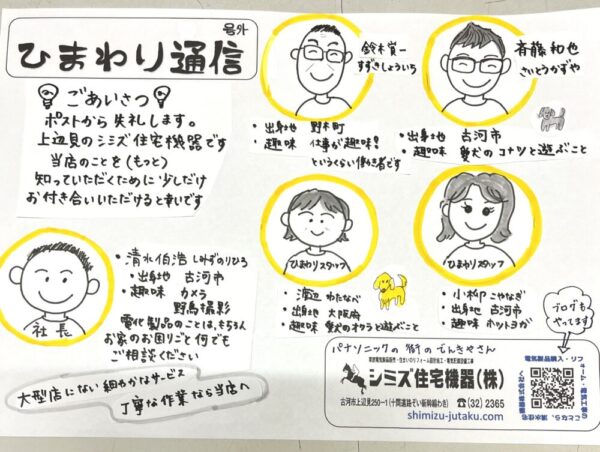 号外
ひまわり通信
ごあいさつ
ポストから失礼します。
上辺見のシミズ住宅機器です
当店のことを(もっと)
知っていただくために少しだけ
お付き合いいただけると幸いです
鈴木賞一
すずきしょういち
・出身地 野木町
・趣味 仕事が趣味!
というくらい働き者です
斉藤和也
さいとうかずや
・出身地 古河市
・趣味 愛犬のコナツと遊ぶこと
社長
・清水伯浩 しみずのりひろ
・出身地 古河市
・趣味 カメラ
野鳥撮影
電化製品のことは、もちろん
お家のお困りごと何でも
ご相談ください
ひまわりスタッフ
・渡辺 わたなべ
・出身地 大阪府
・趣味 愛犬のオクラと遊ぶこと
ひまわりスタッフ
・小栁 こやなぎ
・出身地 古河市
・趣味 ホットヨガ
大型店にない細やかなサービス
丁寧な作業なら当店へ
パナソニックの街のでんきやさん
シミズ住宅機器(株)
古河市上辺見250-1(十間道路ぞい新幹線わき)
(32)2365
shimizu-jutaku.com
ブログも
やってます
電気製品購入・リフ
ォーム・電気工事の
ことなら、清水住宅